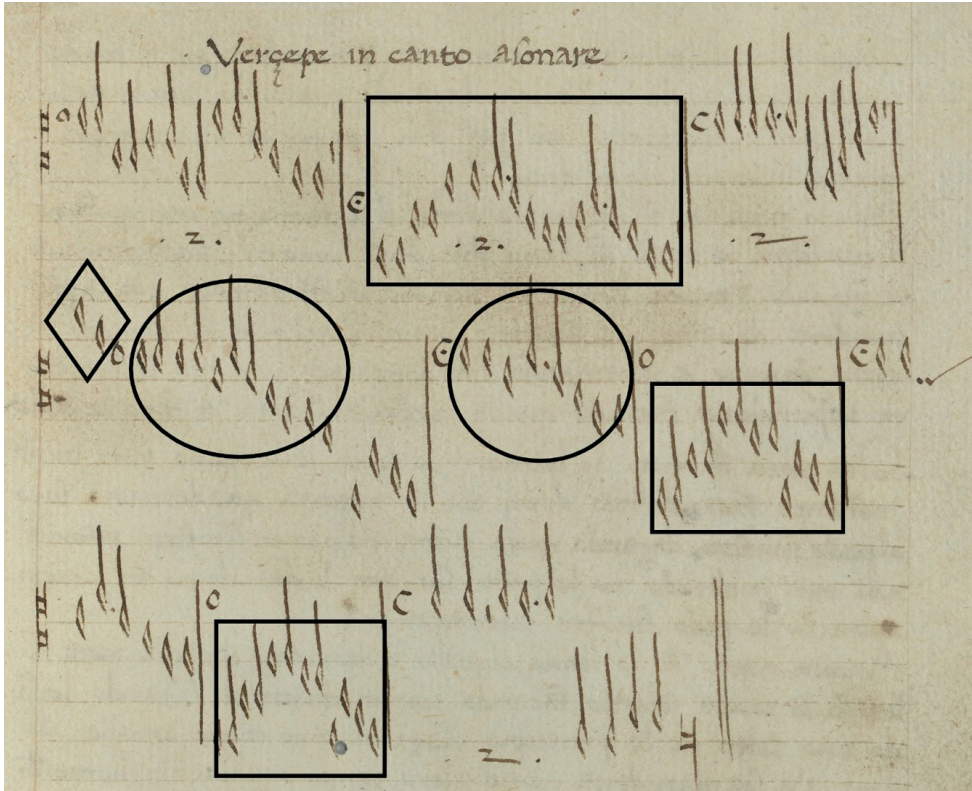 Verçepe in canto asonare
.2. .2. 2.
2.